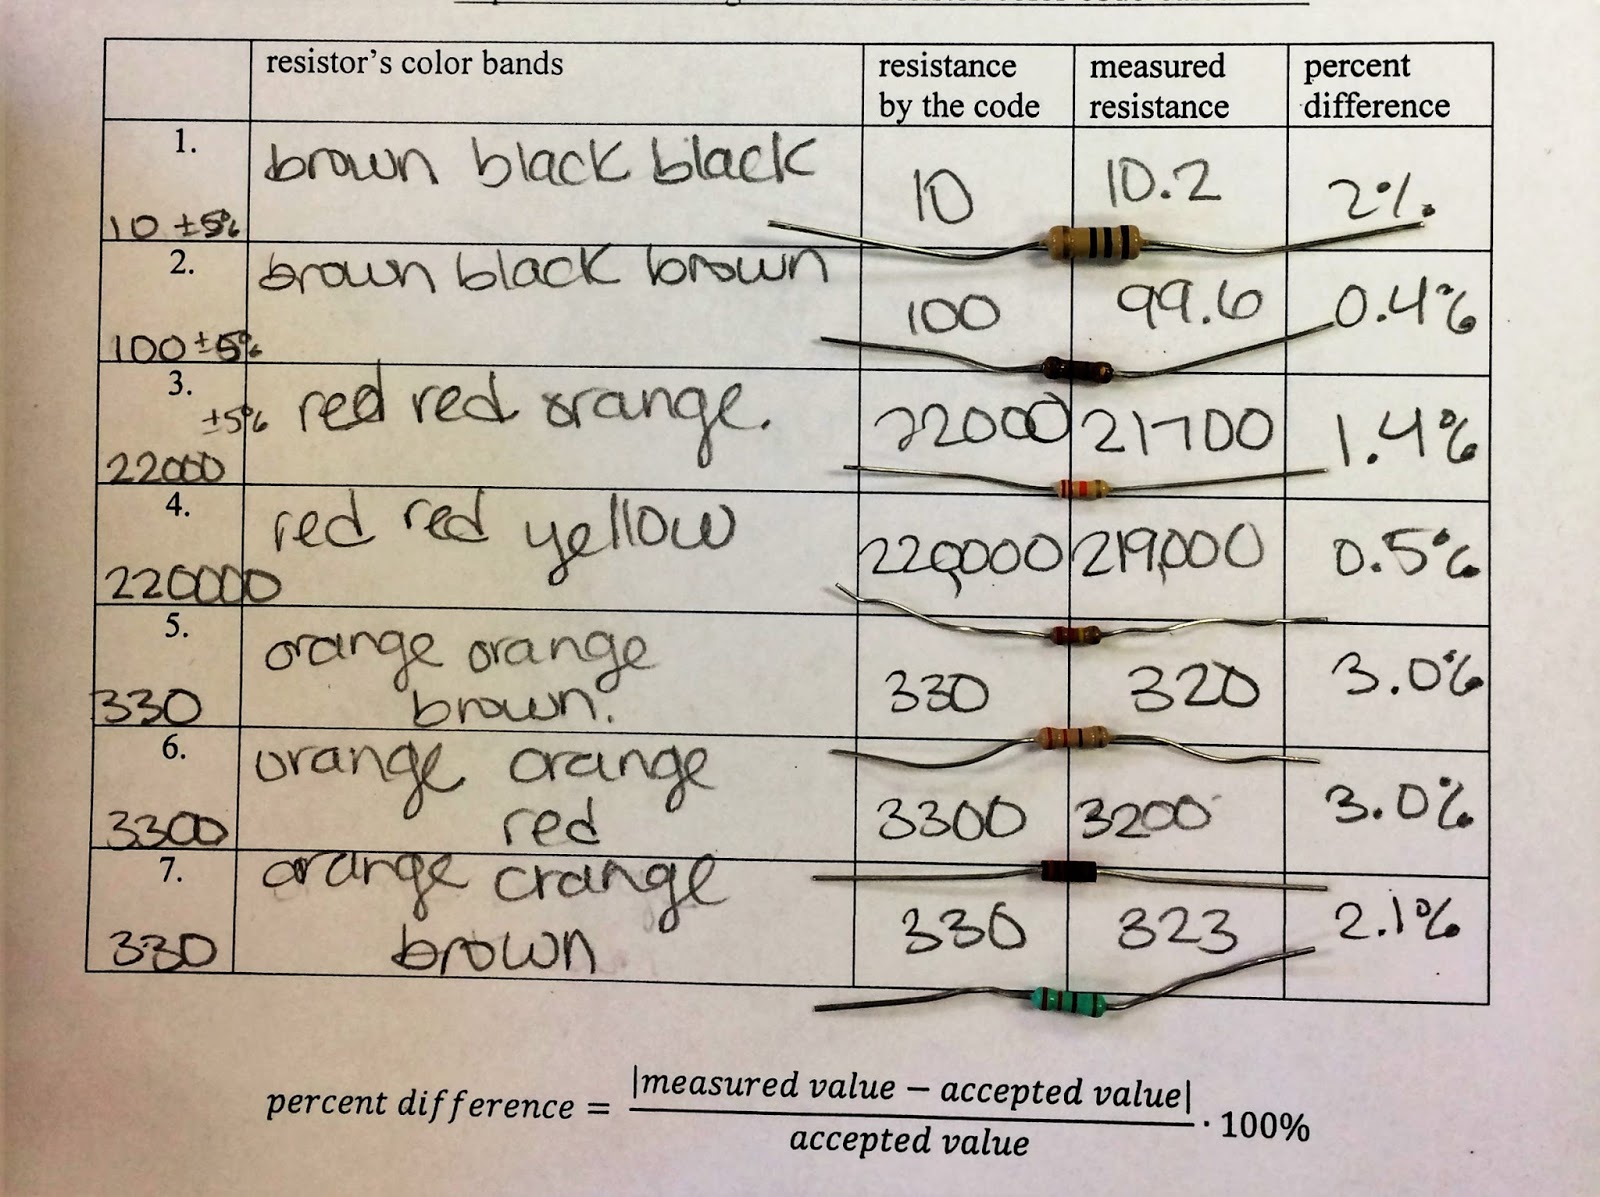 resistor's color bands resistance by the code measured resistance percent difference
1. brown black black 10 10.2 2%
10 ±5%
2. brown black brown 100 99.6 0.4%
100 ±5%
3. ±5% red red orange. 22000 21700 1.4%
22000
4. red red yellow 220,000 219,000 0.5%
220000
5. orange orange 330 320 3.0%
330 brown.
6. orange orange 3300 3200 3.0%
3300 red
7. orange orange 330 323 2.1%
330 brown
percent difference = |measured value − accepted value| / accepted value · 100%